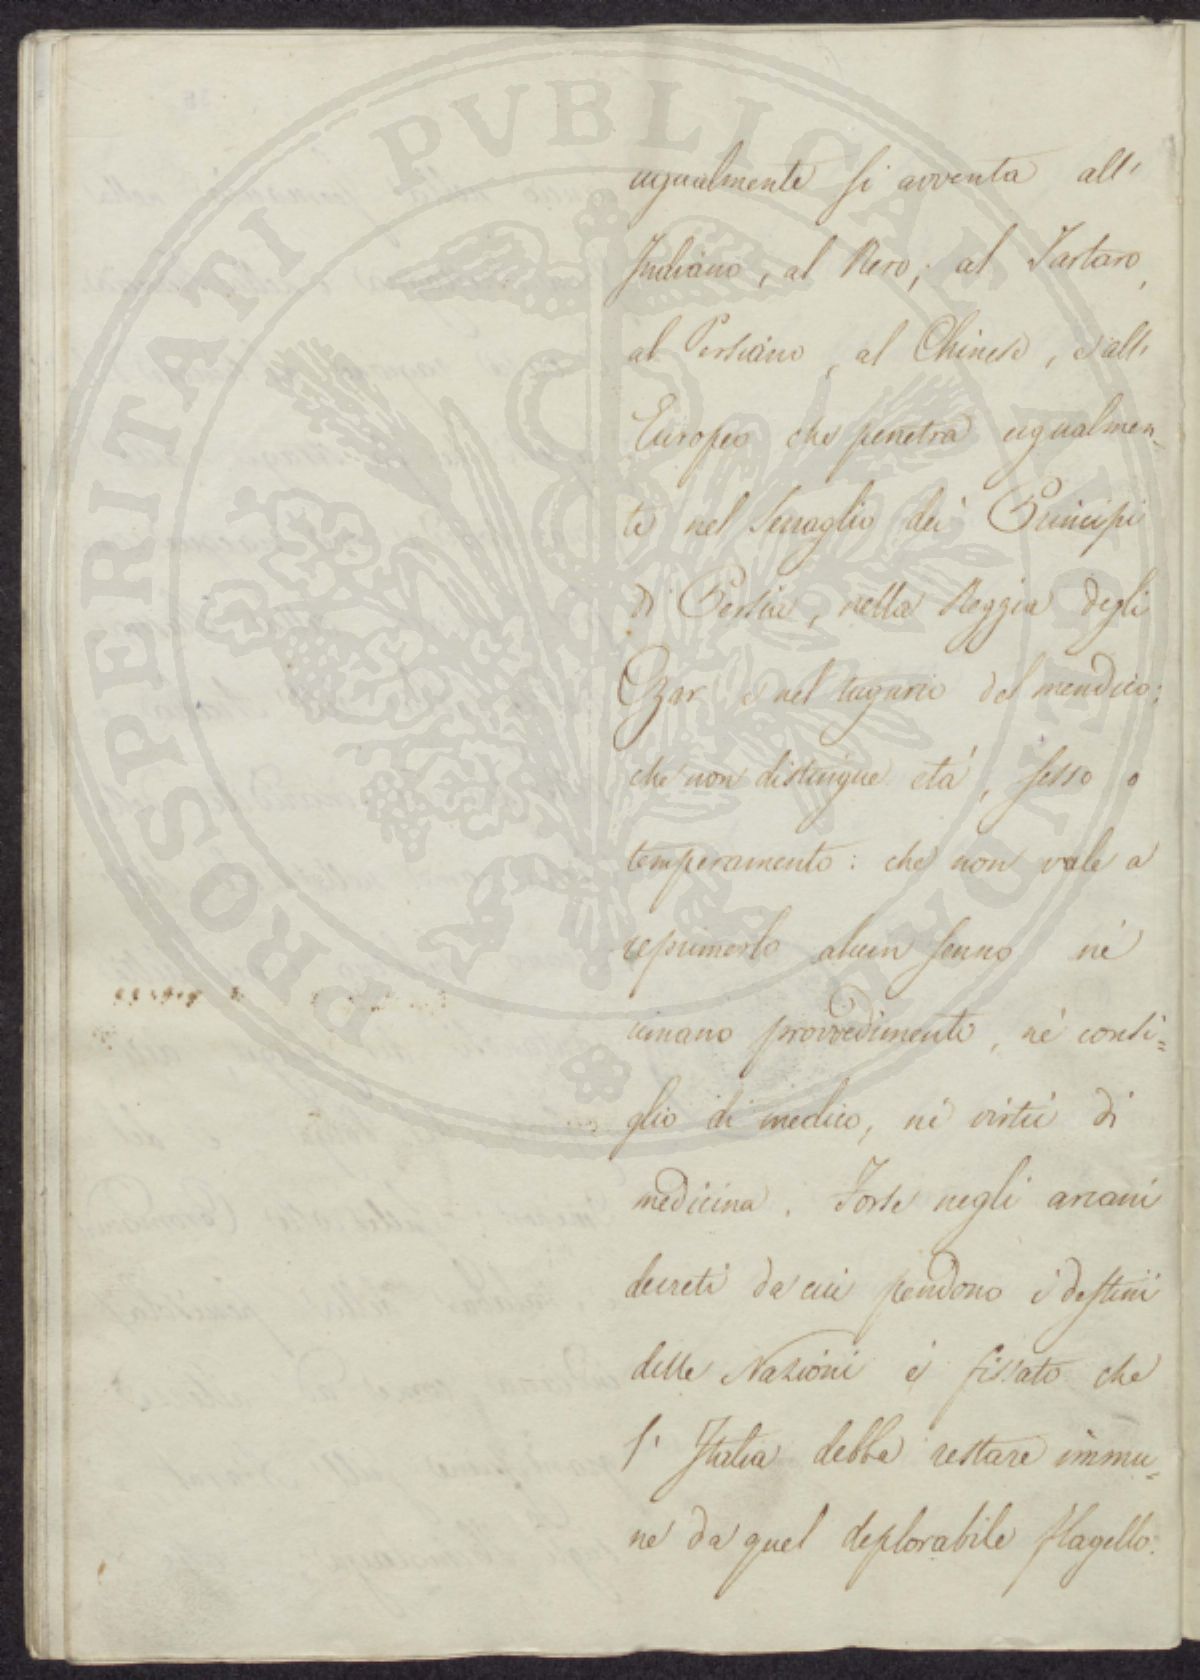 PROSPERITATI PVBLICAE
ugualmente si avventa all'
Indiano, al Nero, al Tartaro,
al Persiano, al Chinese, e all'
Europeo che penetra ugualmen-
te nel Serraglio dei Principi
di Persia, nella Reggia degli
Czar e nel tugurio del mendico:
che non distingue età, sesso o
temperamento: che non vale a
reprimerlo alcun senno né
umano provvedimento, né consi=
glio di medico, né virtù di
medicina. Forse negli arcani
decreti da cui pendono i destini
delle Nazioni è fissato che
l'Italia debba restare immu=
ne da quel deplorabile flagello.